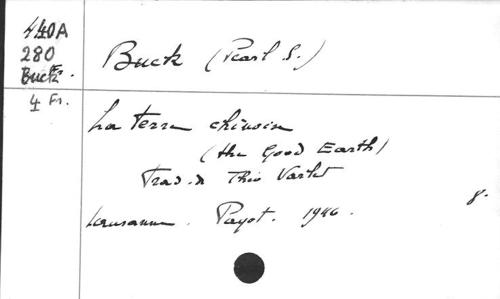 440A
280
Buck Fr.
4 Fr.
Buck (Pearl S.)
La terre chinoise
(the Good Earth)
Trad. de Théo Varlet
Lausanne. Payot. 1946.
8.